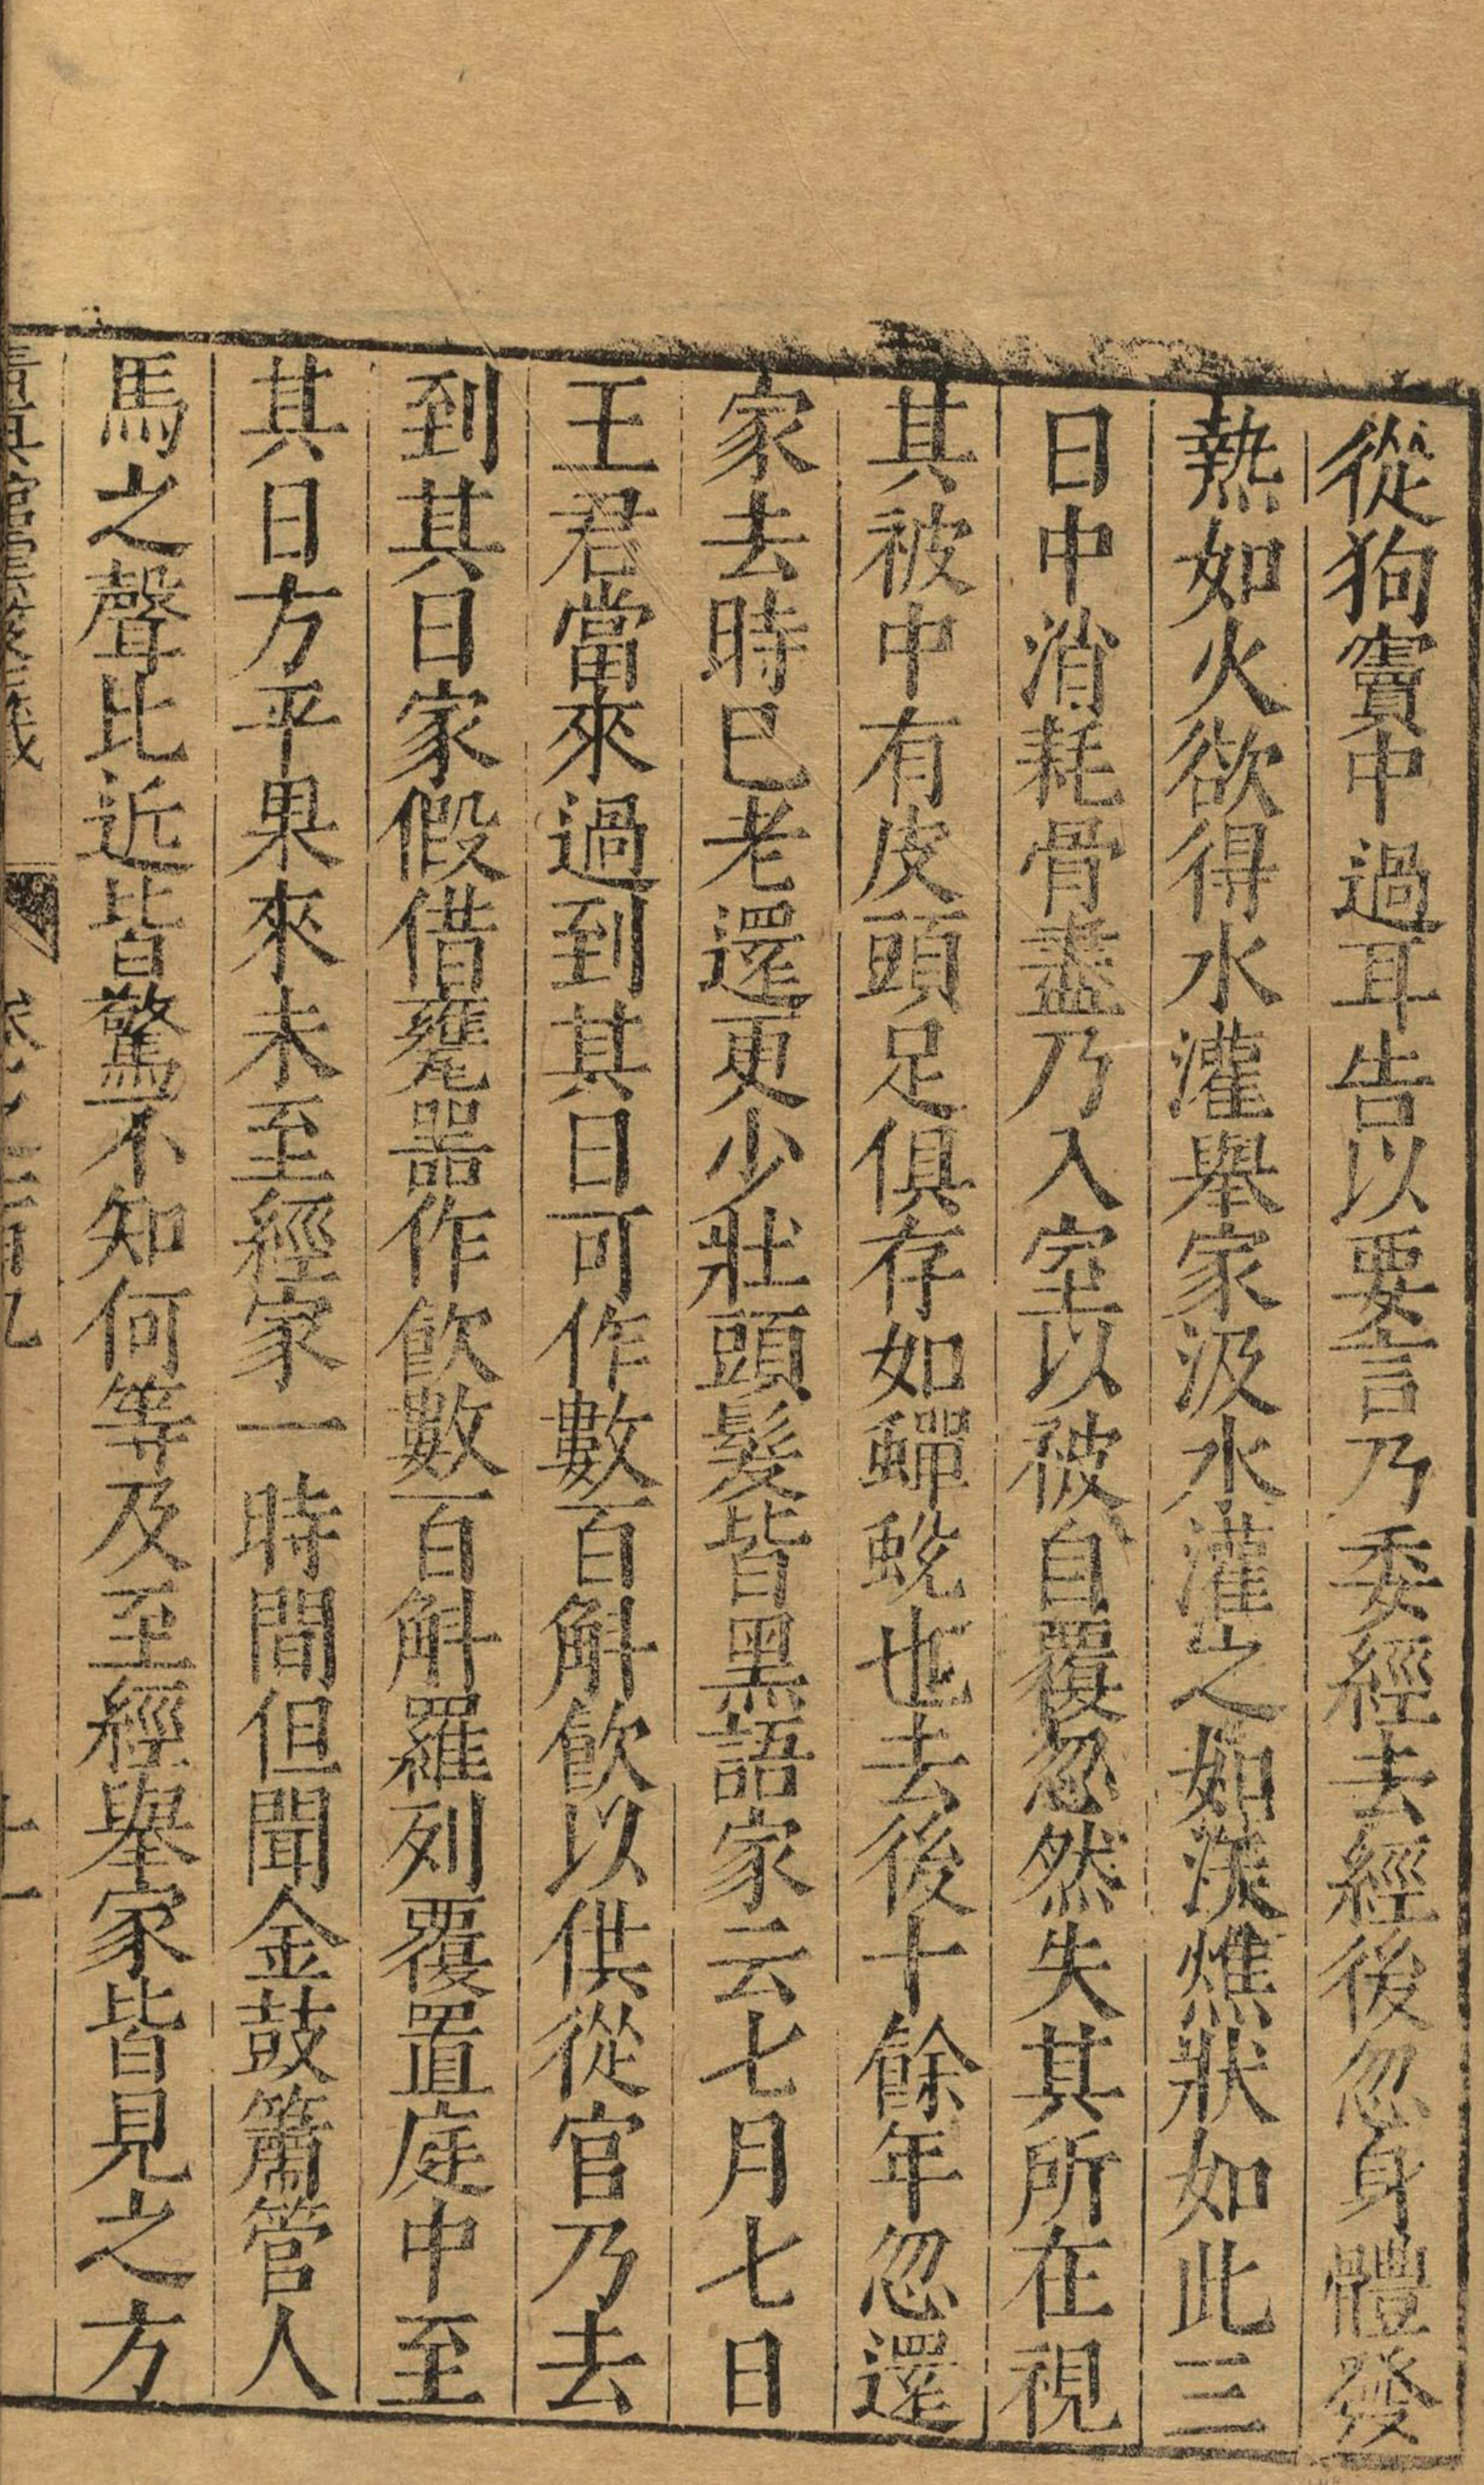 從狗竇中過耳告以要言乃委經去經後忽身體發
熱如火欲得水灌舉家汲水灌之如沃燋狀如此三
日中消耗骨盡乃入室以被自覆忽然失其所在視
其被中有皮頭足俱存如蟬蛻也去後十餘年忽還
家去時已老還更少壯頭髮皆黑語家云七月七日
王君當來過到其日可作數百斛飲以供從官乃去
到其日家假借甕器作飲數百斛羅列覆置庭中至
其日方平果來未至經家一時間但聞金鼓簫管人
馬之聲比近皆驚不知何等及至經舉家皆見之方